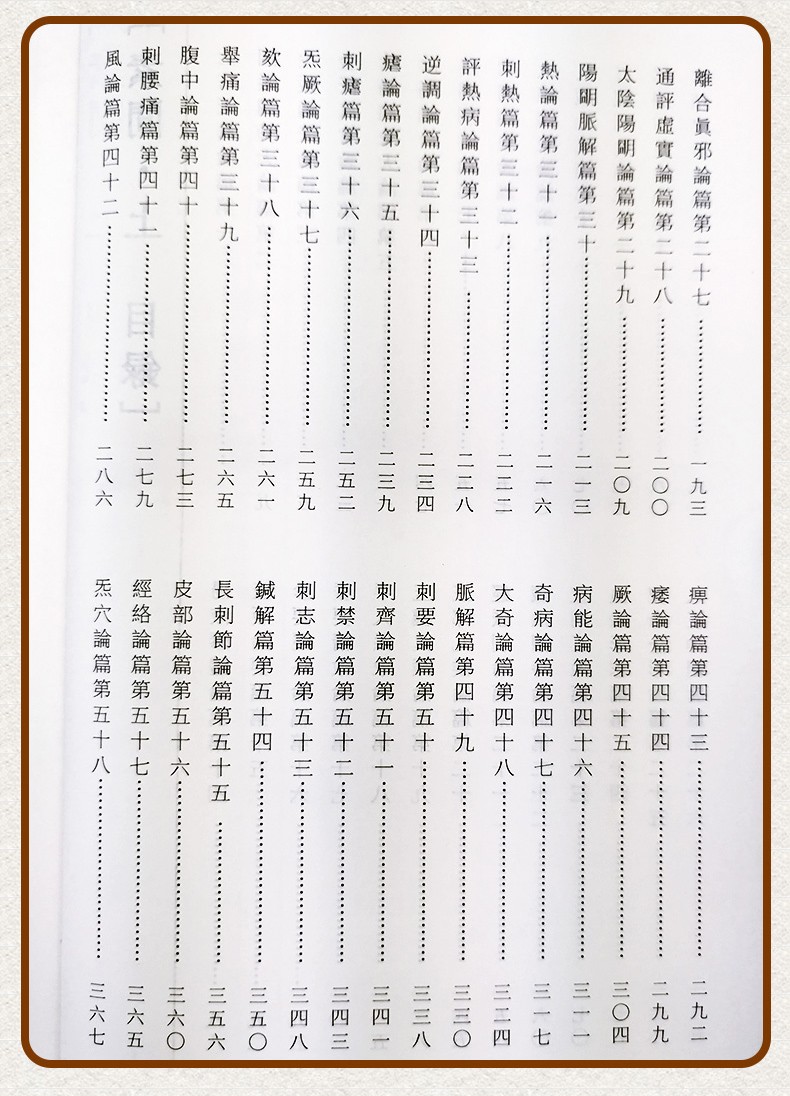 離合眞邪論篇第二十七……一九三
通評虛實論篇第二十八……二〇〇
太陰陽明論篇第二十九……二〇九
陽明脈解篇第三十……二一三
熱論篇第三十一……二一六
刺熱篇第三十二……二二二
評熱病論篇第三十三……二二八
逆調論篇第三十四……二三四
瘧論篇第三十五……二三九
刺瘧篇第三十六……二五二
炁厥論篇第三十七……二五九
欬論篇第三十八……二六一
舉痛論篇第三十九……二六五
腹中論篇第四十……二七三
刺腰痛篇第四十一……二七九
風論篇第四十二……二八六
痹論篇第四十三……二九二
痿論篇第四十四……二九九
厥論篇第四十五……三〇四
病能論篇第四十六……三一一
奇病論篇第四十七……三一七
大奇論篇第四十八……三二四
脈解篇第四十九……三三〇
刺要論篇第五十……三三八
刺齊論篇第五十一……三四一
刺禁論篇第五十二……三四三
刺志論篇第五十三……三四八
鍼解篇第五十四……三五〇
長刺節論篇第五十五……三五六
皮部論篇第五十六……三六〇
經絡論篇第五十七……三六五
炁穴論篇第五十八……三六七